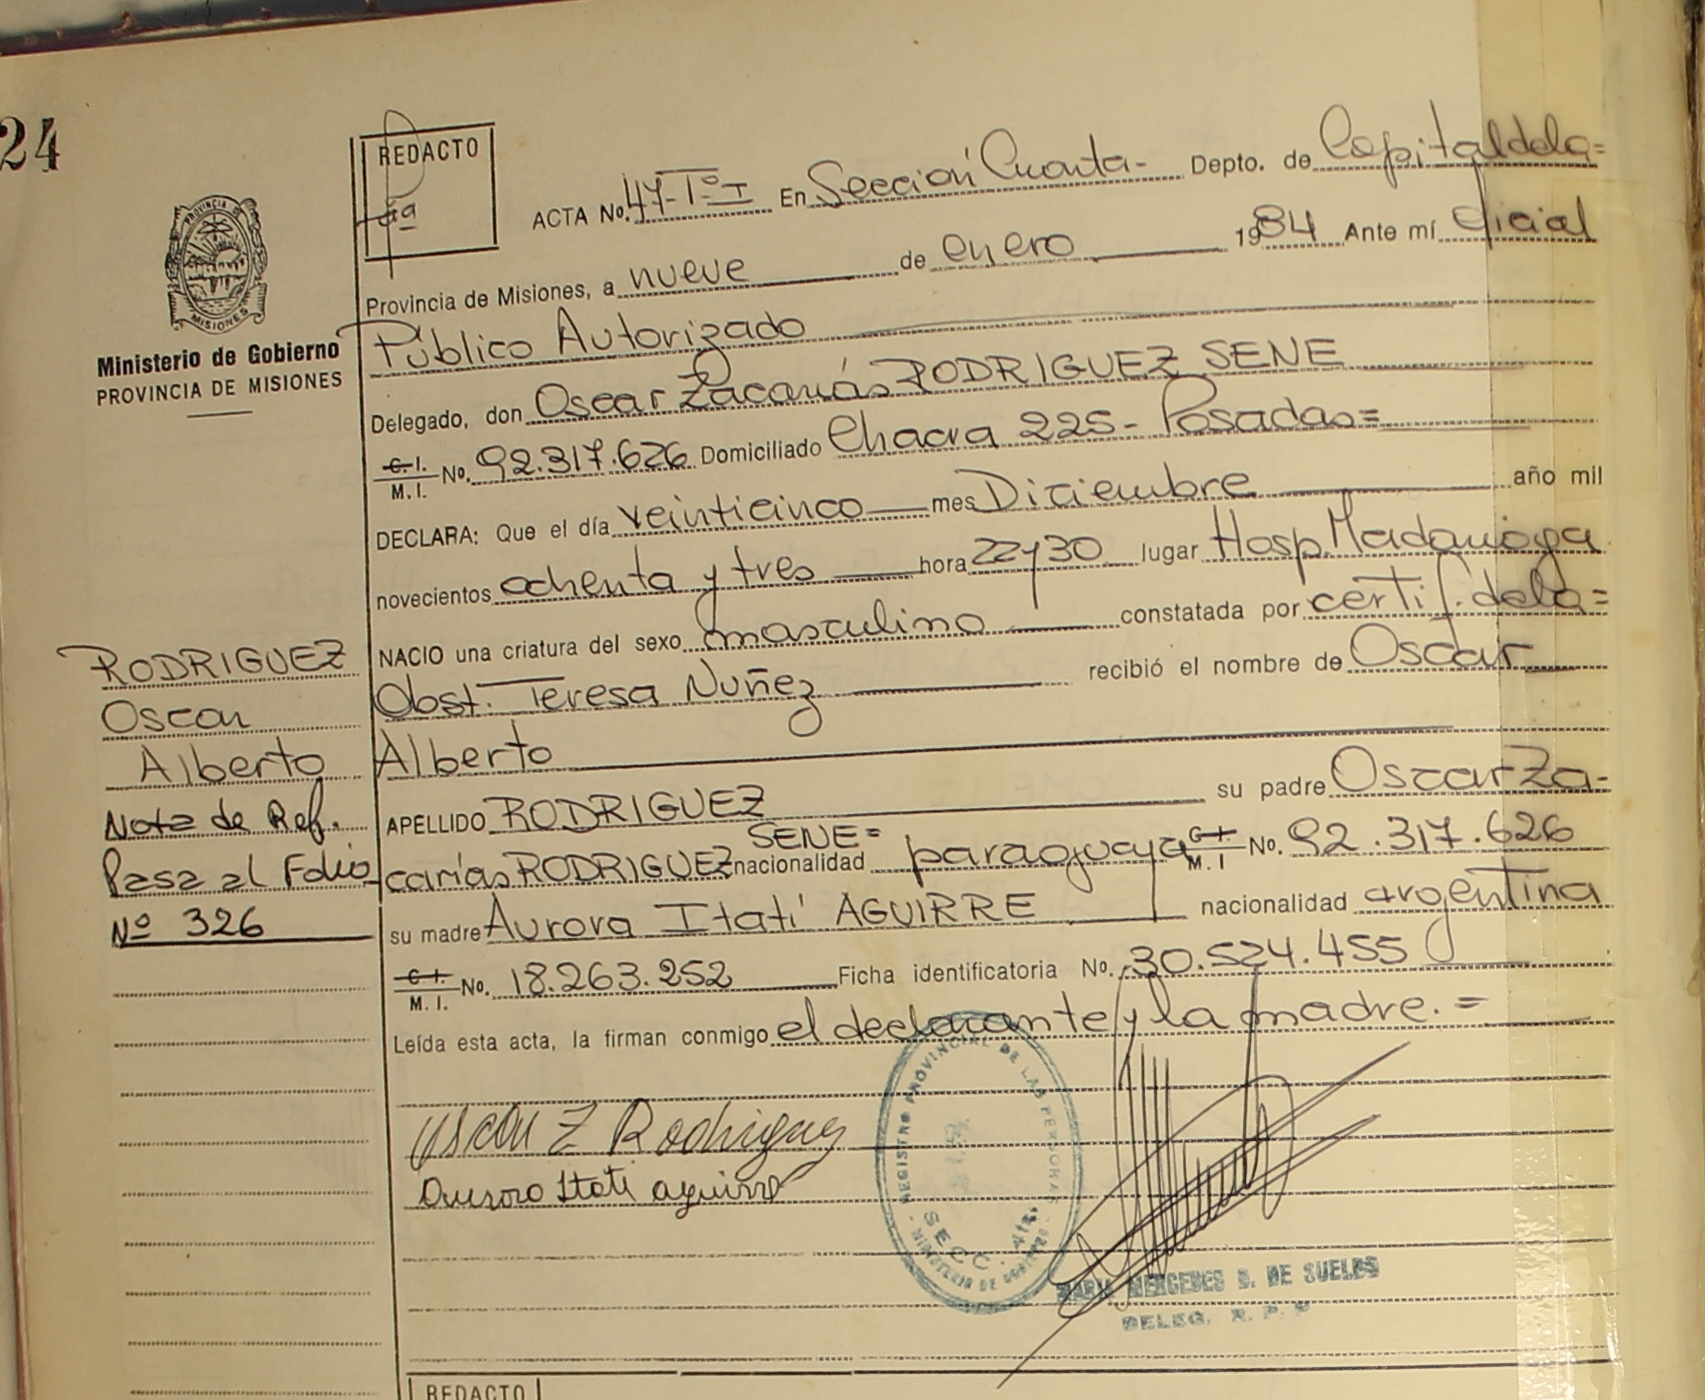 24
REDACTO
PROVINCIA DE
MISIONES
Ministerio de Gobierno
PROVINCIA DE MISIONES
ACTA No. 47-Tº-I En Sección Cuarta- Depto. de Capital de la=
Provincia de Misiones, a nueve de enero 1984 Ante mí oficial
Público Autorizado
Delegado, don Oscar Zacarías RODRIGUEZ SENE
C.I. M.I. No. 92.317.626 Domiciliado Chacra 225- Posadas=
DECLARA: Que el día veinticinco mes Diciembre año mil
novecientos ochenta y tres hora 22y30 lugar Hosp. Madariaga
NACIO una criatura del sexo masculino constatada por certif. de la=
Obst. Teresa Nuñez recibió el nombre de Oscar
Alberto
APELLIDO RODRIGUEZ su padre Oscar Za-
carías RODRIGUEZ SENE= nacionalidad paraguaya C.I. M.I No. 92.317.626
su madre Aurora Itatí AGUIRRE nacionalidad argentina
C.I. M.I. No. 18.263.252 Ficha identificatoria No. 30.524.455
Leída esta acta, la firman conmigo el declarante y la madre.=
RODRIGUEZ
Oscar
Alberto
Nota de Ref.
Pasa al Folio
Nº 326
Oscar Z Rodriguez
Aurora Itati aguirre
REGISTRO PROVINCIAL DE LAS PERSONAS
SECC. 4ta.
MINISTERIO DE GOBIERNO
DE SUELDS
DELEG. R. P. P
REDACTO